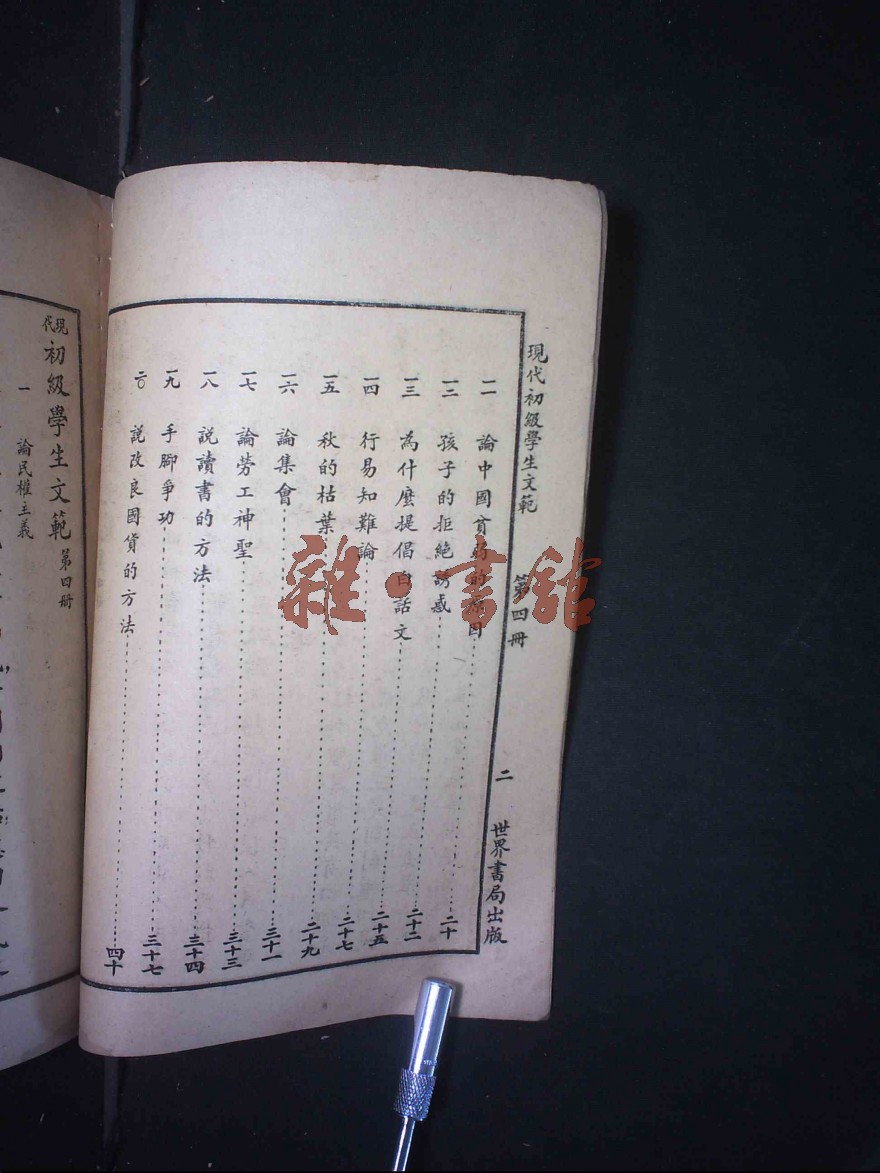 現代初級學生文範 第四冊 二 世界書局出版
一一 論中國貧弱的原因 二十
一二 孩子的拒絕誘惑 二十二
一三 為什麼提倡白話文 二十五
一四 行易知難論 二十七
一五 秋的枯葉 二十九
一六 論集會 三十一
一七 論勞工神聖 三十三
一八 說讀書的方法 三十四
一九 手腳爭功 三十七
二〇 說改良國貨的方法 四十
現代初級學生文範 第四冊
一 論民權主義
雜·書館